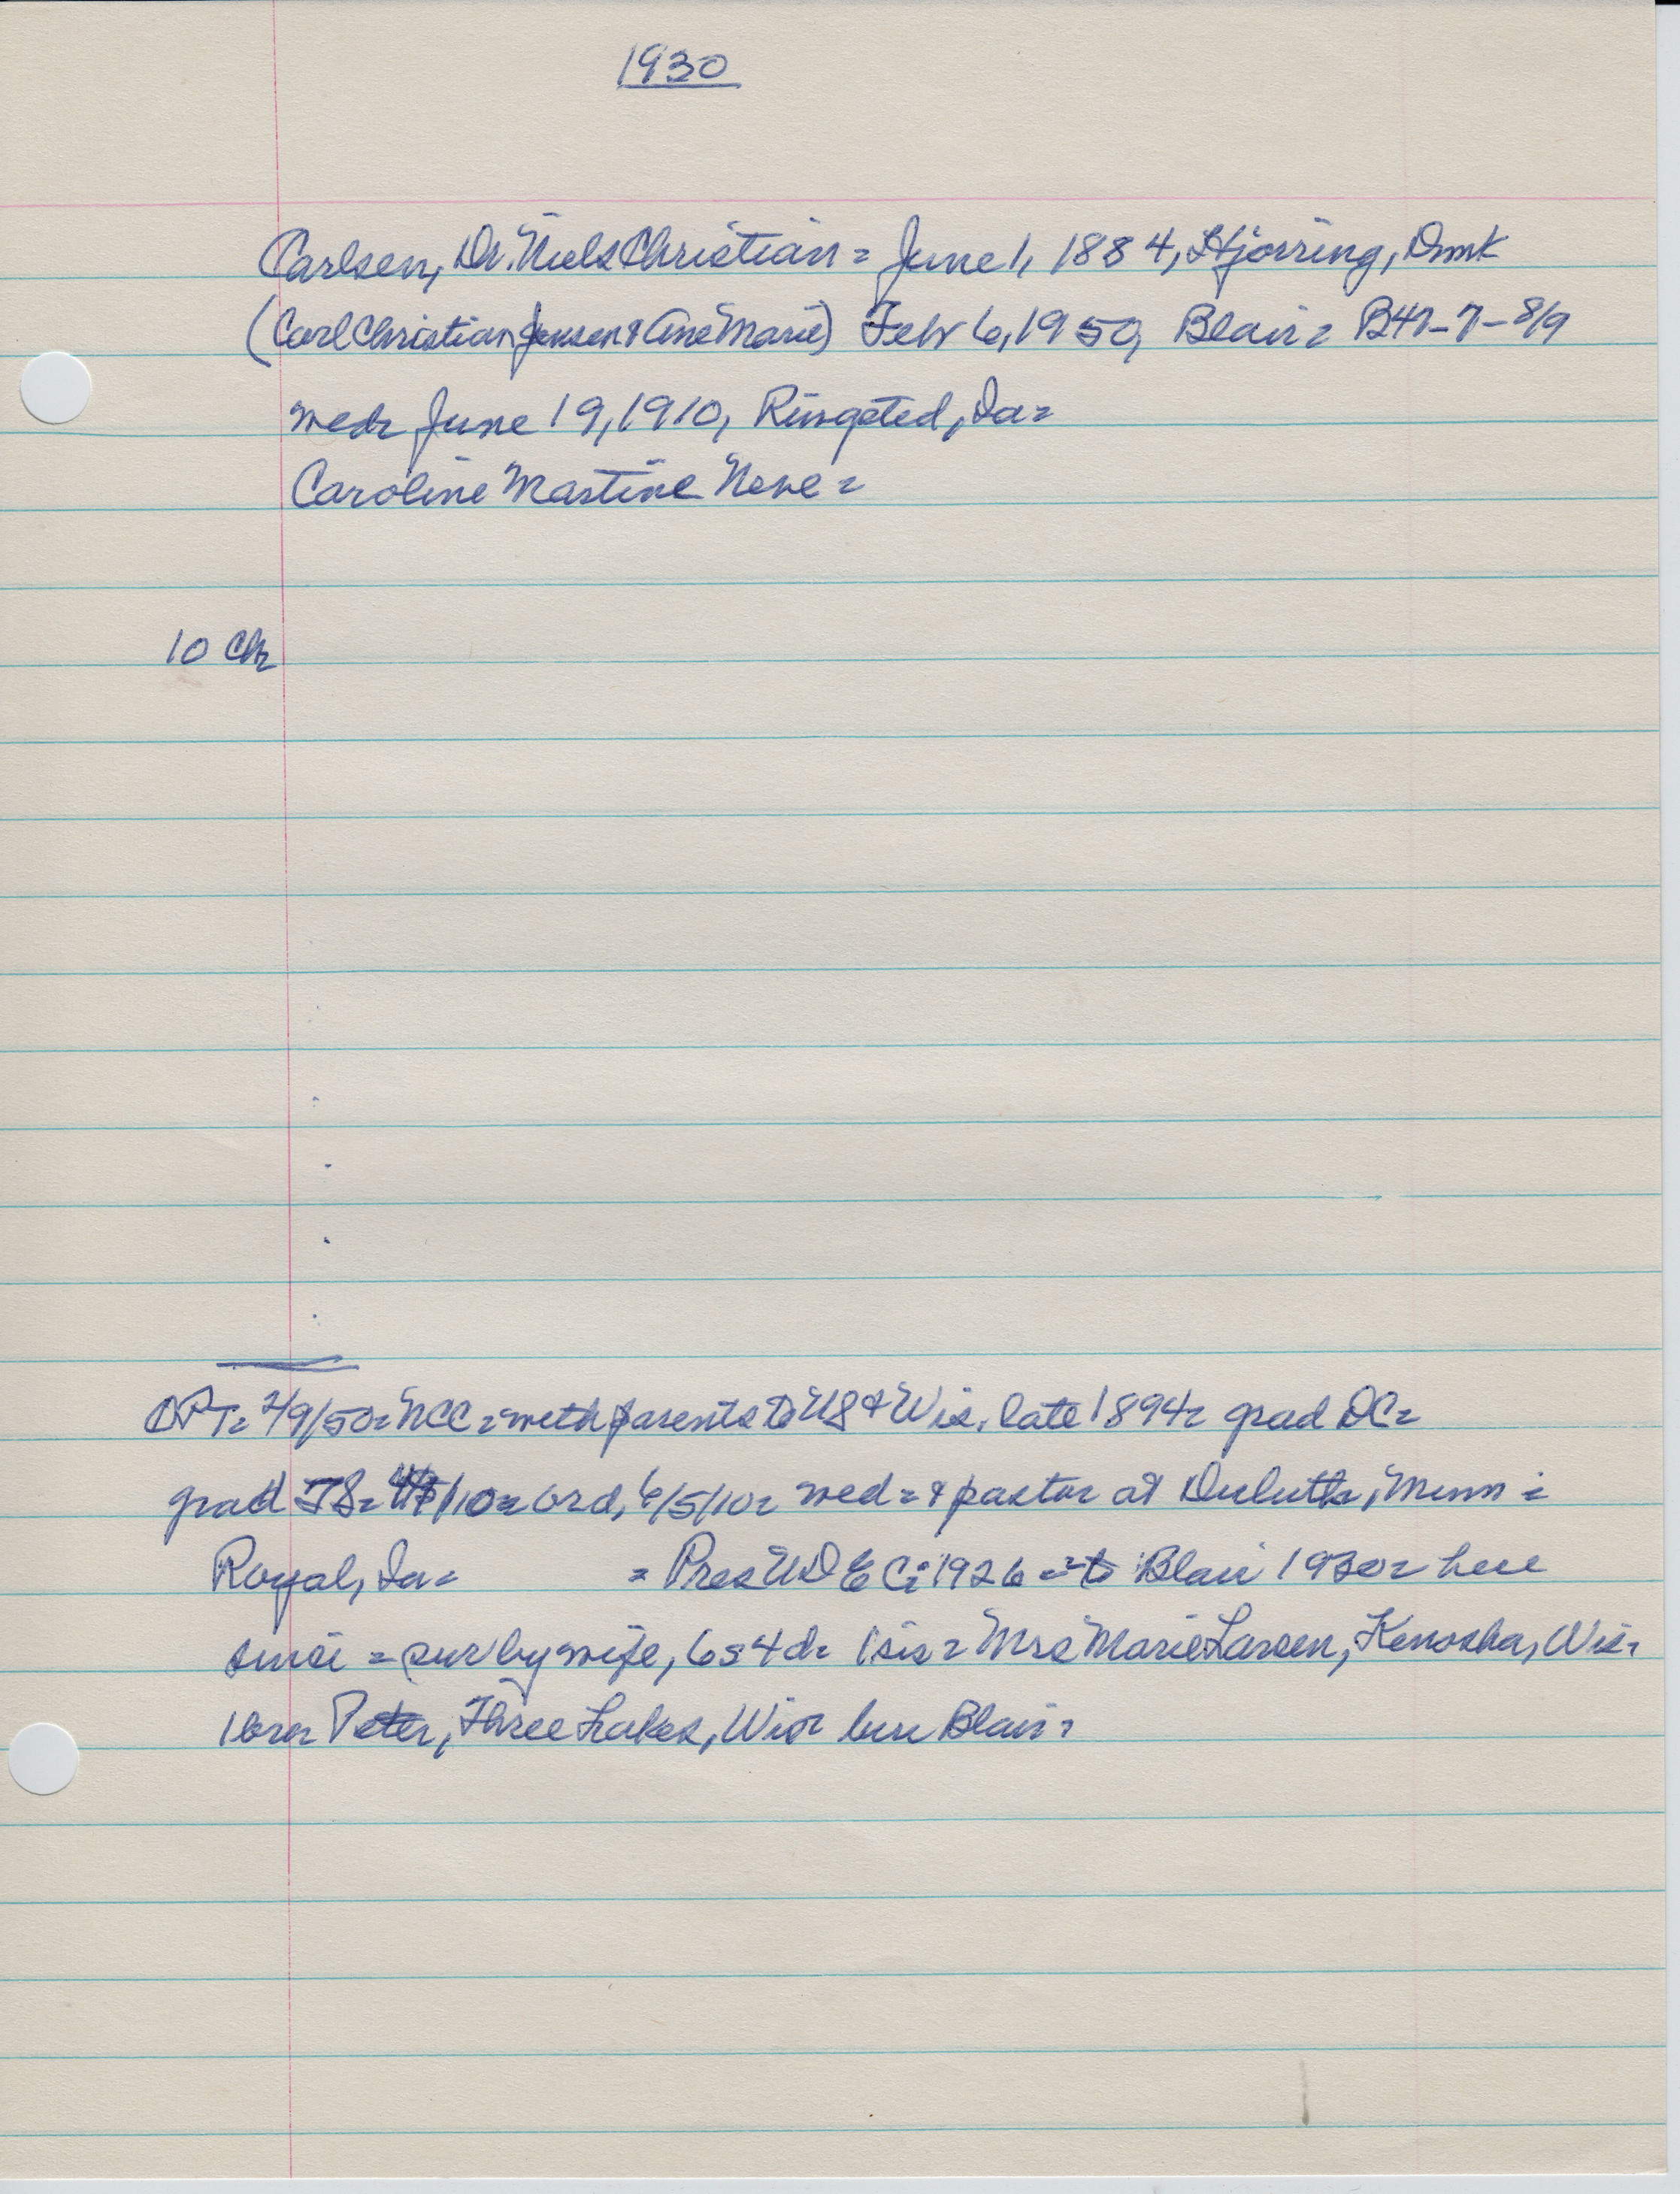 1930
Carlsen, Dr. Niels Christian = June 1, 1884, Hjorring, Dmk
(Carl Christian Jensen & Ane Marie) Feb 6, 1950, Blair = B47-7-8/9
wed= June 19, 1910, Ringsted, Ia=
Caroline Martine Neve =
10 Ch=
2/9/50= NCC = with parents to US & Wis. late 1894= grad DC=
grad TS= /10= ord, 6/5/10= wed = & pastor at Duluth, Minn =
Royal, Ia= = Pres UDEC: 1926 = to Blair 1930= here
since = sur by wife, 6s 4d= 1 sis = Mrs Marie Larsen, Kenosha, Wis=
1 bro= Peter, Three Lakes, Wis= bur Blair=